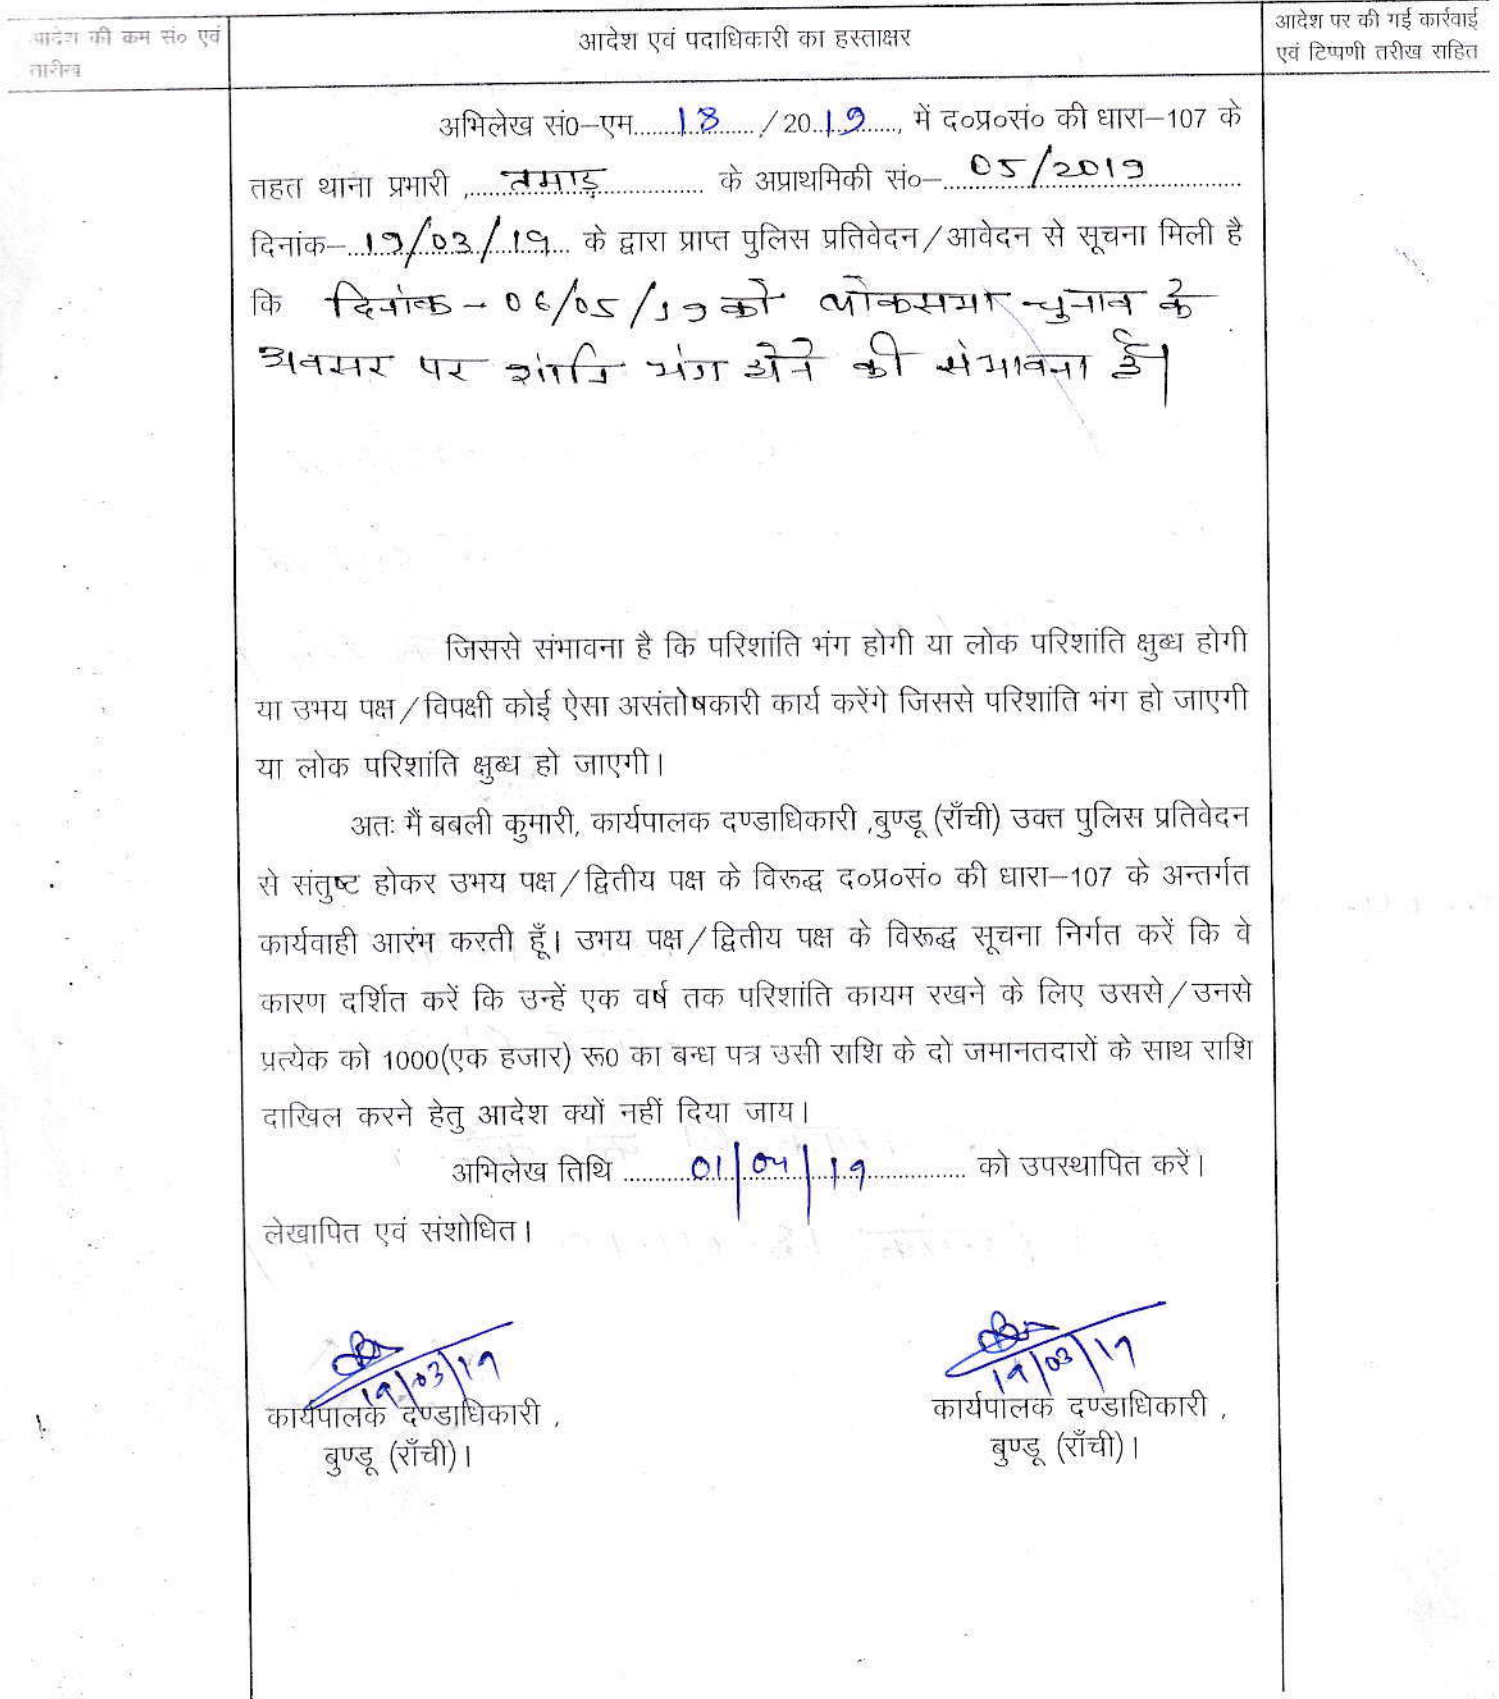 आदेश की कम सं० एवं
तारीख
आदेश एवं पदाधिकारी का हस्ताक्षर
आदेश पर की गई कार्रवाई
एवं टिप्पणी तरीख सहित
अभिलेख सं0–एम....18..../20.19...., में द०प्र०सं० की धारा–107 के
तहत थाना प्रभारी ,....तमाड़.... के अप्राथमिकी सं०–....05/2019....
दिनांक–...19/03/19... के द्वारा प्राप्त पुलिस प्रतिवेदन/आवेदन से सूचना मिली है
कि दिनांक - 06/05/19 को लोकसभा चुनाव के
अवसर पर शांति भंग होने की संभावना है।
जिससे संभावना है कि परिशांति भंग होगी या लोक परिशांति क्षुब्ध होगी
या उभय पक्ष/विपक्षी कोई ऐसा असंतोषकारी कार्य करेंगे जिससे परिशांति भंग हो जाएगी
या लोक परिशांति क्षुब्ध हो जाएगी।
अतः मैं बबली कुमारी, कार्यपालक दण्डाधिकारी ,बुण्डू (राँची) उक्त पुलिस प्रतिवेदन
से संतुष्ट होकर उभय पक्ष/द्वितीय पक्ष के विरूद्ध द०प्र०सं० की धारा–107 के अन्तर्गत
कार्यवाही आरंभ करती हूँ। उभय पक्ष/द्वितीय पक्ष के विरूद्ध सूचना निर्गत करें कि वे
कारण दर्शित करें कि उन्हें एक वर्ष तक परिशांति कायम रखने के लिए उससे/उनसे
प्रत्येक को 1000(एक हजार) रू0 का बन्ध पत्र उसी राशि के दो जमानतदारों के साथ राशि
दाखिल करने हेतु आदेश क्यों नहीं दिया जाय।
अभिलेख तिथि ........01/04/19........ को उपस्थापित करें।
लेखापित एवं संशोधित।
19/03/19
कार्यपालक दण्डाधिकारी ,
बुण्डू (राँची)।
19/03/19
कार्यपालक दण्डाधिकारी ,
बुण्डू (राँची)।